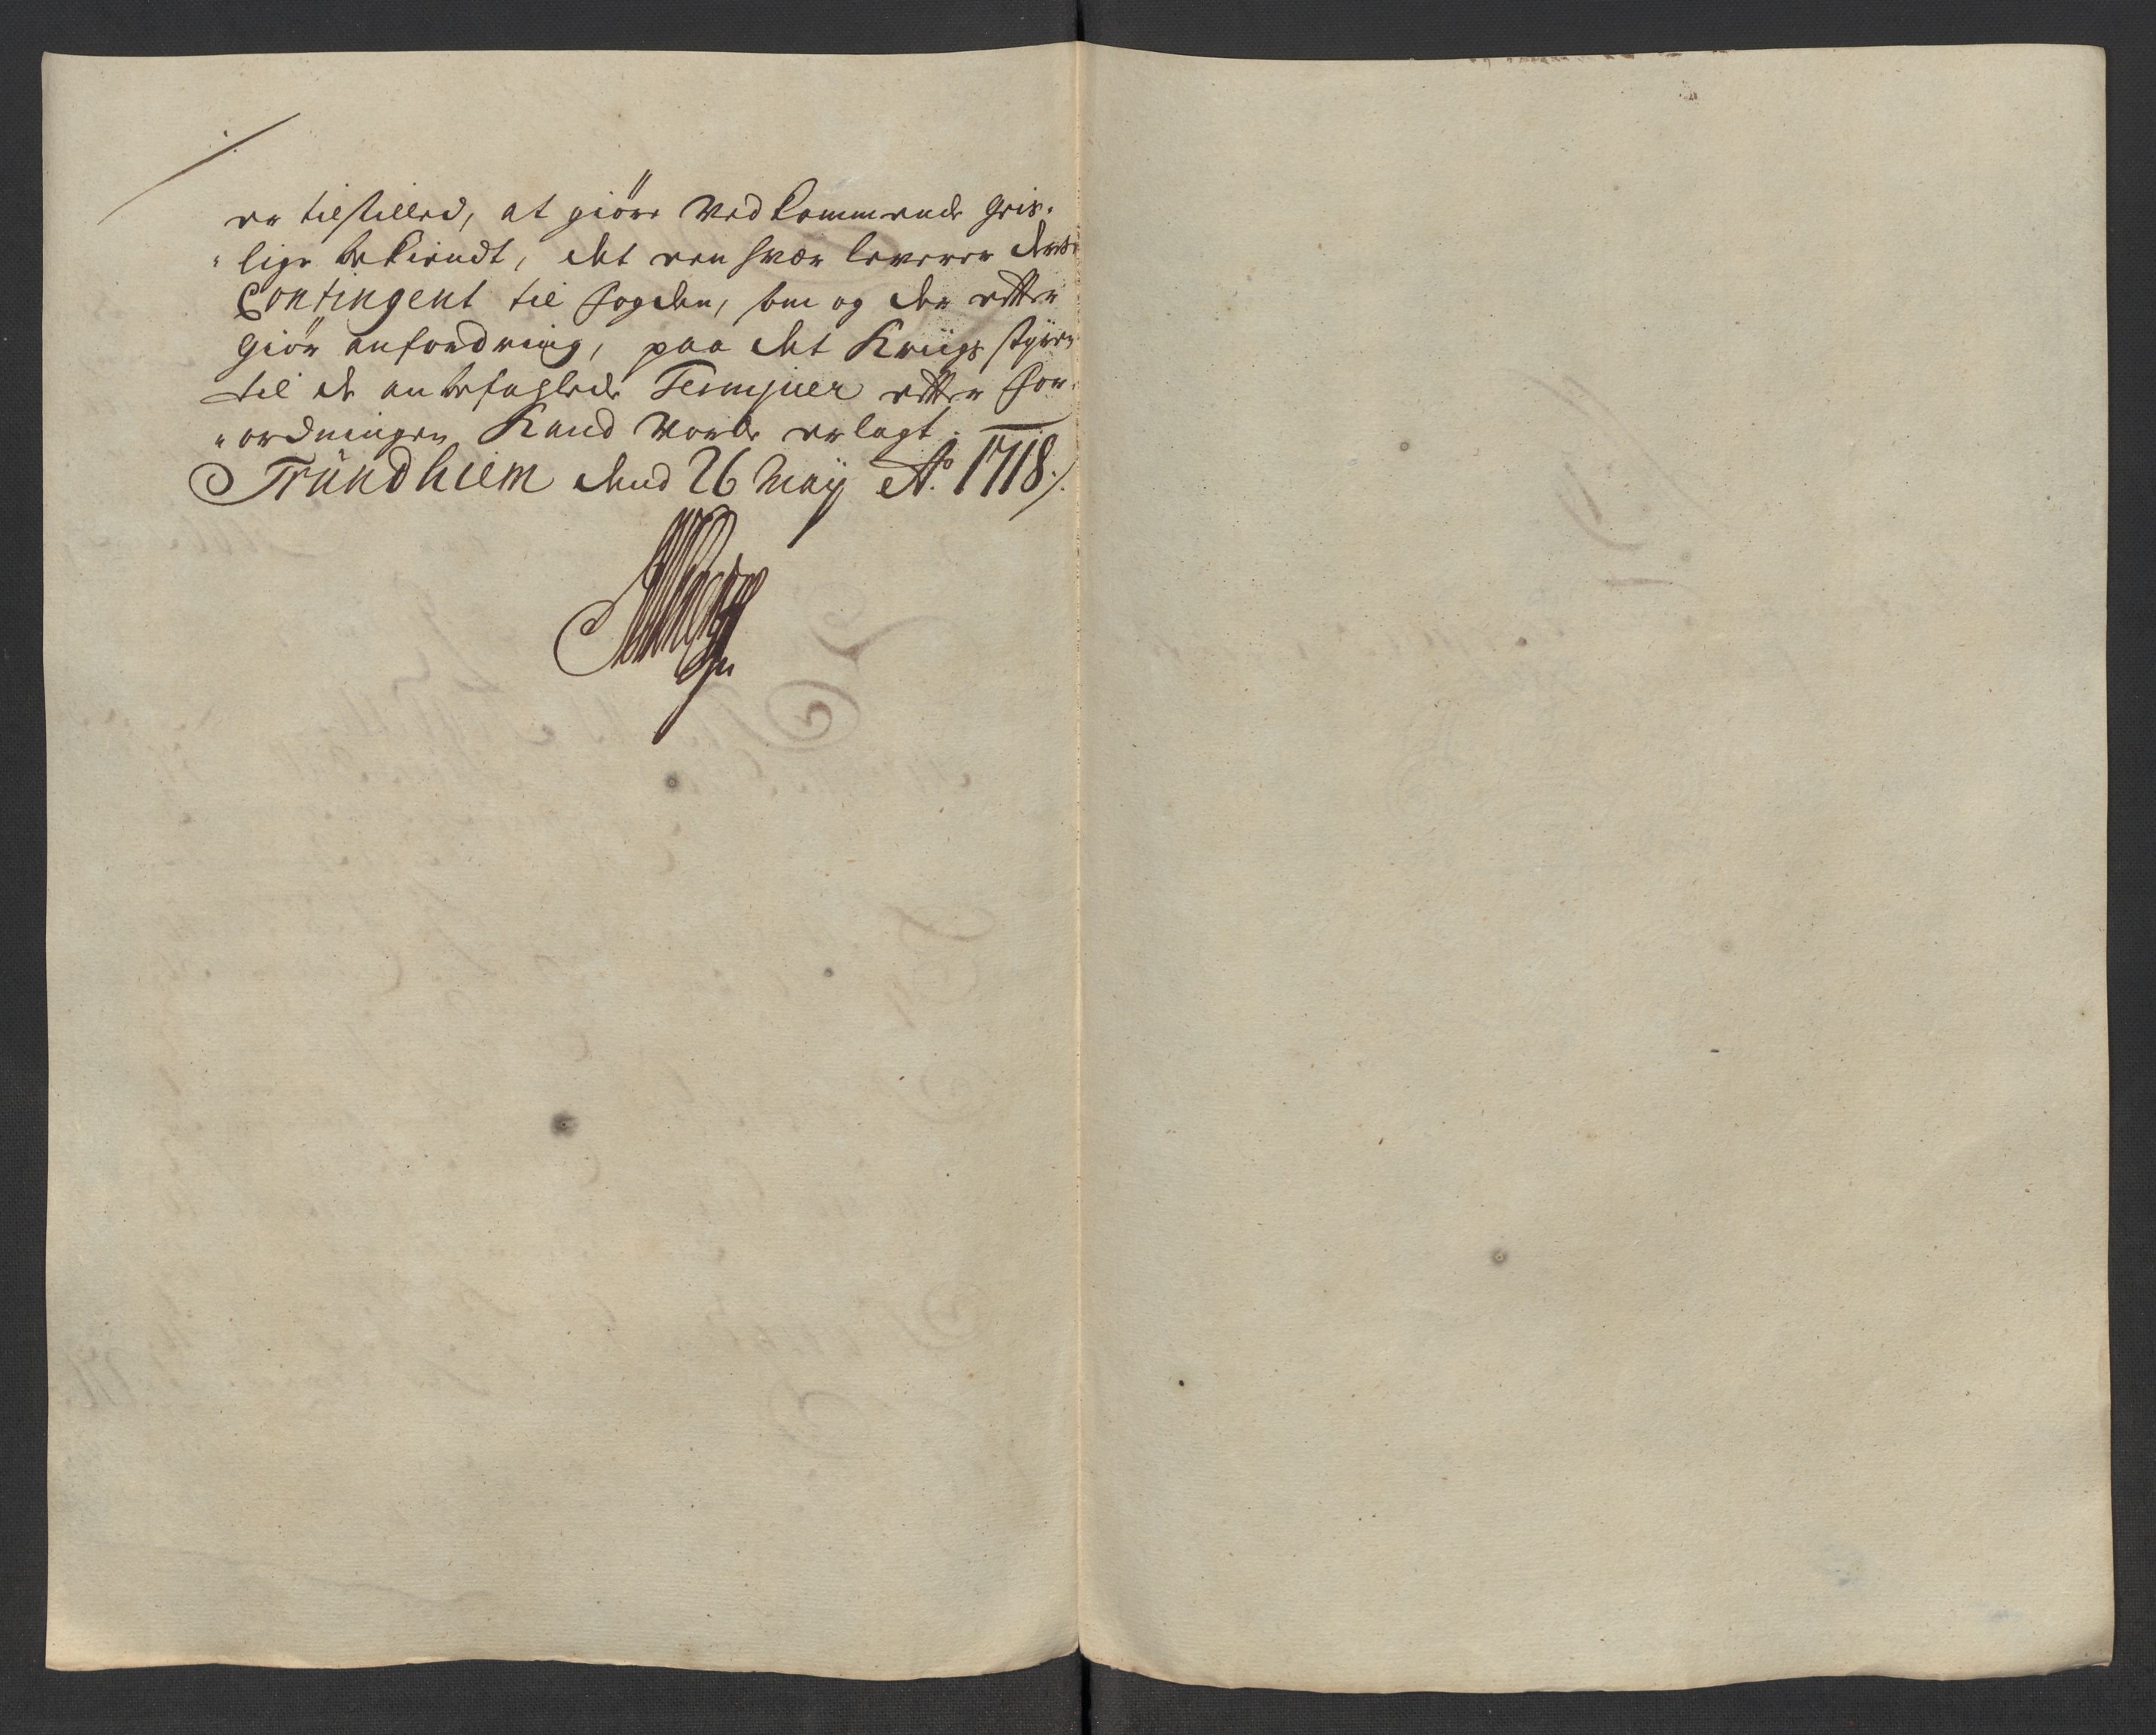 er tilstilled, at giöre Vedkommende geis-
"lige bekiendt, det een hver leverer deris
Contingent til fogden, som og der effter
giör anfordring, paa det Kriigs styren
til de anbefahlede Terminer effter for-
"ordningen Kand vorde erlagt.
Tründhiem dend 26 Maÿ Ao. 1718.